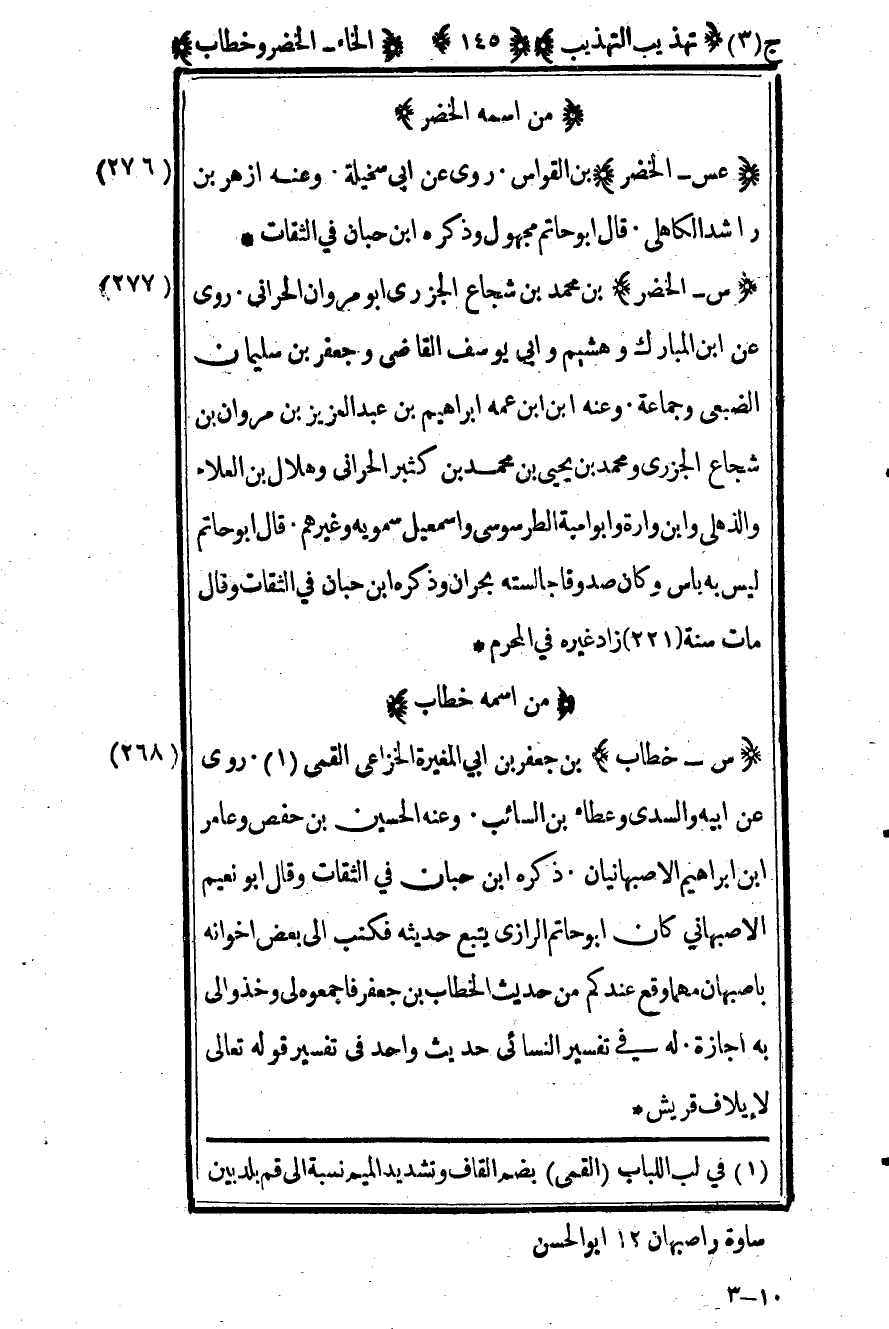 ج(٣) ﴿ تهذيب التهذيب ﴾ ﴿ ١٤٥ ﴾ ﴿ الخاء ـ الخضر وخطاب ﴾
﴿ من اسمه الخضر ﴾
(٢٧٦) ﴿ عس ـ الخضر ﴾ بن القواس · روى عن ابي سخيلة · وعنه ازهر بن
راشد الكاهلى · قال ابو حاتم مجهول وذكره ابن حبان في الثقات *
(٢٧٧) ﴿ س ـ الخضر ﴾ بن محمد بن شجاع الجزرى ابو مروان الحرانى · روى
عن ابن المبارك وهشيم وابي يوسف القاضى وجعفر بن سليمان
الضبعى وجماعة · وعنه ابن ابن عمه ابراهيم بن عبد العزيز بن مروان بن
شجاع الجزرى ومحمد بن يحيى بن محمد بن كثير الحرانى وهلال بن العلاء
والذهلى وابن وارة وابو امية الطرسوسى واسمعيل سمويه وغيرهم · قال ابو حاتم
ليس به باس وكان صدوقا جالسته بحران وذكره ابن حبان في الثقات وقال
مات سنة (٢٢١) زاد غيره في المحرم *
﴿ من اسمه خطاب ﴾
(٢٦٨) ﴿ س ـ خطاب ﴾ بن جعفر بن ابي المغيرة الخزاعى القمى (١) · روى
عن ابيه والسدى وعطاء بن السائب · وعنه الحسين بن حفص وعامر
ابن ابراهيم الاصبهانيان · ذكره ابن حبان في الثقات وقال ابو نعيم
الاصبهاني كان ابو حاتم الرازى يتبع حديثه فكتب الى بعض اخوانه
باصبهان مهما وقع عندكم من حديث الخطاب بن جعفر فاجمعوه لى وخذوا لى
به اجازة · له في تفسير النسائى حديث واحد فى تفسير قوله تعالى
لإيلاف قريش *
(١) في لب اللباب (القمى) بضم القاف وتشديد الميم نسبة الى قم بلد بين
ساوة واصبهان ١٢ ابو الحسن
٣ـ١٠